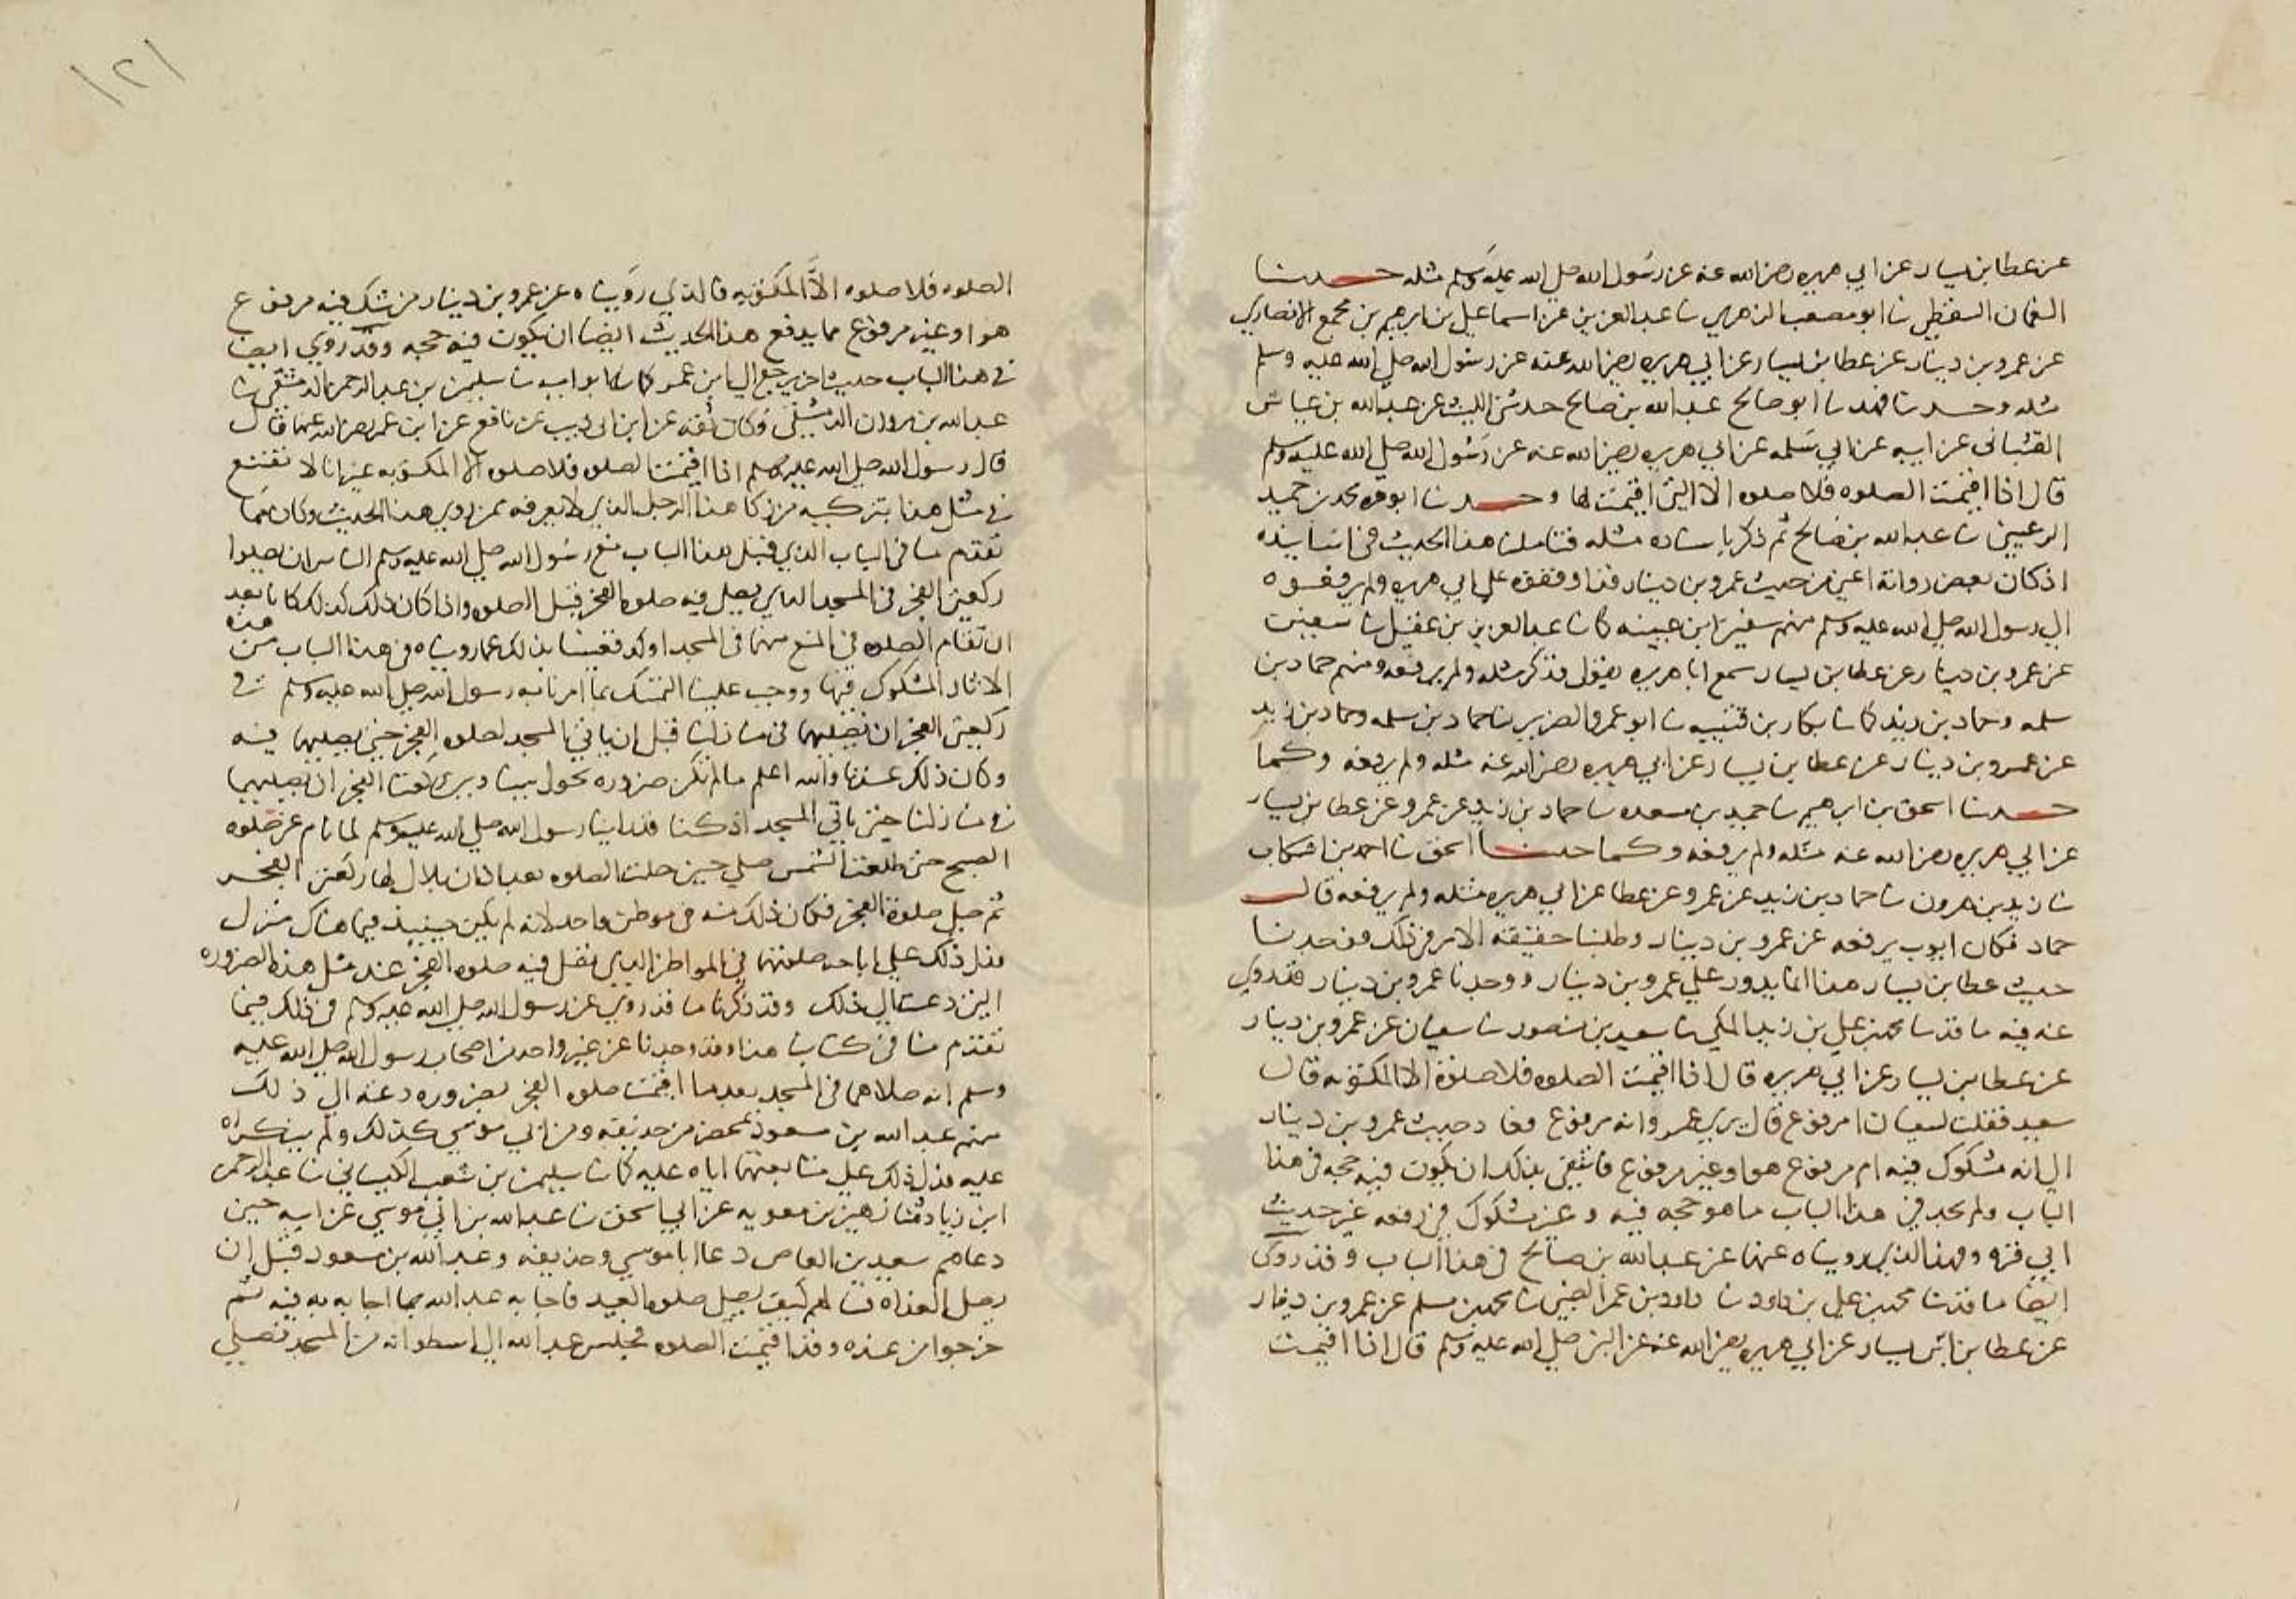 عن عطا بن يسار عن ابي هريره رضي الله عنه عن رسول الله صلى الله عليه وسلم مثله حدثنا
النعمان السقطي ثنا ابو مصعب الزهري ثنا عبد العزيز بن عن اسماعيل بن ابرهيم بن مجمع الانصاري
عن عمرو بن دينار عن عطا بن يسار عن ابي هريره رضي الله عنه عن رسول الله صلى الله عليه وسلم
مثله وحدثنا فهد ثنا ابو صالح عبد الله بن صالح حدثني الليث عن عبد الله بن عياش
القتباني عن ابيه عن ابي سلمه عن ابي هريره رضي الله عنه عن رسول الله صلى الله عليه وسلم
قال اذا اقيمت الصلوه فلا صلوه الا التي اقيمت لها وحدثنا ابو قره محمد بن حميد
الرعيني ثنا عبد الله بن صالح ثم ذكر باسناده مثله فتاملنا هذا الحديث في اسانيده
اذ كان بعض رواته اعني من حديث عمرو بن دينار قد اوقفوه على ابي هريره ولم يرفعوه
الى رسول الله صلى الله عليه وسلم منهم سفين ابن عيينه كما ثنا عبد العزيز بن عقيل ثنا سفين
عن عمرو بن دينار عن عطا بن يسار سمع ابا هريره يقول فذكر مثله ولم يرفعه ومنهم حماد بن
سلمه وحماد بن زيد كما ثنا بكار بن قتيبه ثنا ابو عمر الضرير ثنا حماد بن سلمه وحماد بن زيد
عن عمرو بن دينار عن عطا بن يسار عن ابي هريره رضي الله عنه مثله ولم يرفعه وكما
حدثنا اسحق بن ابرهيم ثنا حميد بن مسعده ثنا حماد بن زيد عن عمرو عن عطا بن يسار
عن ابي هريره رضي الله عنه مثله ولم يرفعه وكما حدثنا اسحق ثنا احمد بن اشكاب
ثنا يزيد بن هرون ثنا حماد بن زيد عن عمرو عن عطا عن ابي هريره مثله ولم يرفعه قال
حماد فكان ايوب يرفعه عن عمرو بن دينار وطلبنا حقيقه الامر في ذلك فوجدنا
حديث عطا بن يسار هذا انما يدور على عمرو بن دينار ووجدنا عمرو بن دينار قد روي
عنه فيه ما قد ثنا محمد بن علي بن زيد المكي ثنا سعيد بن منصور ثنا سفيان عن عمرو بن دينار
عن عطا بن يسار عن ابي هريره قال اذا اقيمت الصلوه فلا صلوة الا المكتوبه قال
سعيد فقلت لسفيان امرفوع قال يرى عمرو انه مرفوع فعاد حديث عمرو بن دينار
الى انه مشكوك فيه ام مرفوع هو او غير مرفوع فانتفى بذلك ان يكون فيه حجه في هذا
الباب ولم نجد في هذا الباب ما هو حجه فيه وغير مشكوك في رفعه غير حديث
ابي قره وفهد الذي رويناه عنهما عن عبد الله بن صالح في هذا الباب وقد روى
ايضا ما قد ثنا محمد بن علي بن داود ثنا داود بن عمر الضبي ثنا محمد بن مسلم عن عمرو بن دينار
عن عطا بن يسار عن ابي هريره رضي الله عنه عن النبي صلى الله عليه وسلم قال اذا اقيمت
١٢١
الصلوه فلا صلوه الا المكتوبه فالذي رويناه عن عمرو بن دينار من شك فيه مرفوع
هو او غير مرفوع مما يدفع هذا الحديث ايضا ان يكون فيه حجه وقد روي ايضا
في هذا الباب حديث اخر يرجع الى ابن عمر كما ثنا ثنا سليمن بن عبد الرحمن الدمشقي ثنا
عبد الله بن مروان الدمشقي وكان ثقه عن ابن ابي ذيب عن نافع عن ابن عمر رضي الله عنهما قال
قال رسول الله صلى الله عليه وسلم اذا اقيمت الصلوه فلا صلوه الا المكتوبه غير انا لا نقتنع
في مثل هذا بتزكيه من زكا هذا الرجل الذي لا نعرفه ممن روى هذا الحديث وكان مما
تقدم منا في الباب الذي قبل هذا الباب منع رسول الله صلى الله عليه وسلم الناس ان يصلوا
ركعتي الفجر في المسجد الذي يصلى فيه صلوه الفجر قبل الصلوه واذا كان ذلك كذلك كانا بعد
ان تقام الصلوه في المنع منهما في المسجد اوكد فغنينا بذلك عما رويناه في هذا الباب من هذه
الاثار المشكوك فيها ووجب علينا التمسك بما امرنا به رسول الله صلى الله عليه وسلم في
ركعتي الفجر ان نصليهما في منازلنا قبل ان ناتي المسجد لصلوه الفجر حتى نصليها فيه
وكان ذلك عندنا والله اعلم ما لم تكن ضروره تحول بيننا وبين ركعتا الفجر ان نصليهما
في منازلنا حين ناتي المسجد اذ كنا قد راينا رسول الله صلى الله عليه وسلم لما نام عن صلوه
الصبح حتى طلعت الشمس صلى حين حلت الصلوه بعد اذان بلال لها ركعتي الفجر
ثم صلى صلوة الفجر فكان ذلك منه في موطن واحد لانه لم يكن حينيذ فيما هناك منزل
فدل ذلك على اباحه صلوتهما في المواطن الذي تصلى فيه صلوه الفجر عند مثل هذه الضروره
التي دعت الى ذلك وقد ذكرنا ما قد روي عن رسول الله صلى الله عليه وسلم في ذلك فيما
تقدم منا في كتابنا هذا وقد وجدنا عن غير واحد من اصحاب رسول الله صلى الله عليه
وسلم انه صلاهما في المسجد بعد ما اقيمت صلوه الفجر بضروره دعته الى ذلك
منهم عبد الله بن مسعود بمحضر من حذيفه ومن ابي موسى كذلك ولم ينكراه
عليه فدل ذلك على متابعتهما اياه عليه كما ثنا سليمن بن شعيب الكيساني ثنا عبد الرحمن
ابن زياد ثنا زهير بن معويه عن ابي اسحق ثنا عبد الله بن ابي موسى عن ابيه حين
دعاهم سعيد بن العاص دعا ابا موسى وحذيفه وعبد الله بن مسعود قبل ان
يصلى الغداه لهم كيف يصلى صلوه العيد فاجابه عبد الله بما اجابه به فيه ثم
خرجوا من عنده وقد اقيمت الصلوه فجلس عبد الله الى اسطوانه من المسجد فصلى